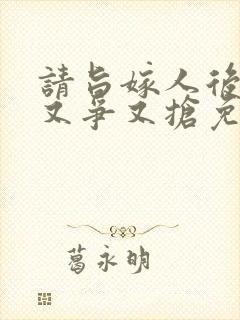 請旨嫁人後
又爭又搶免
葛永明